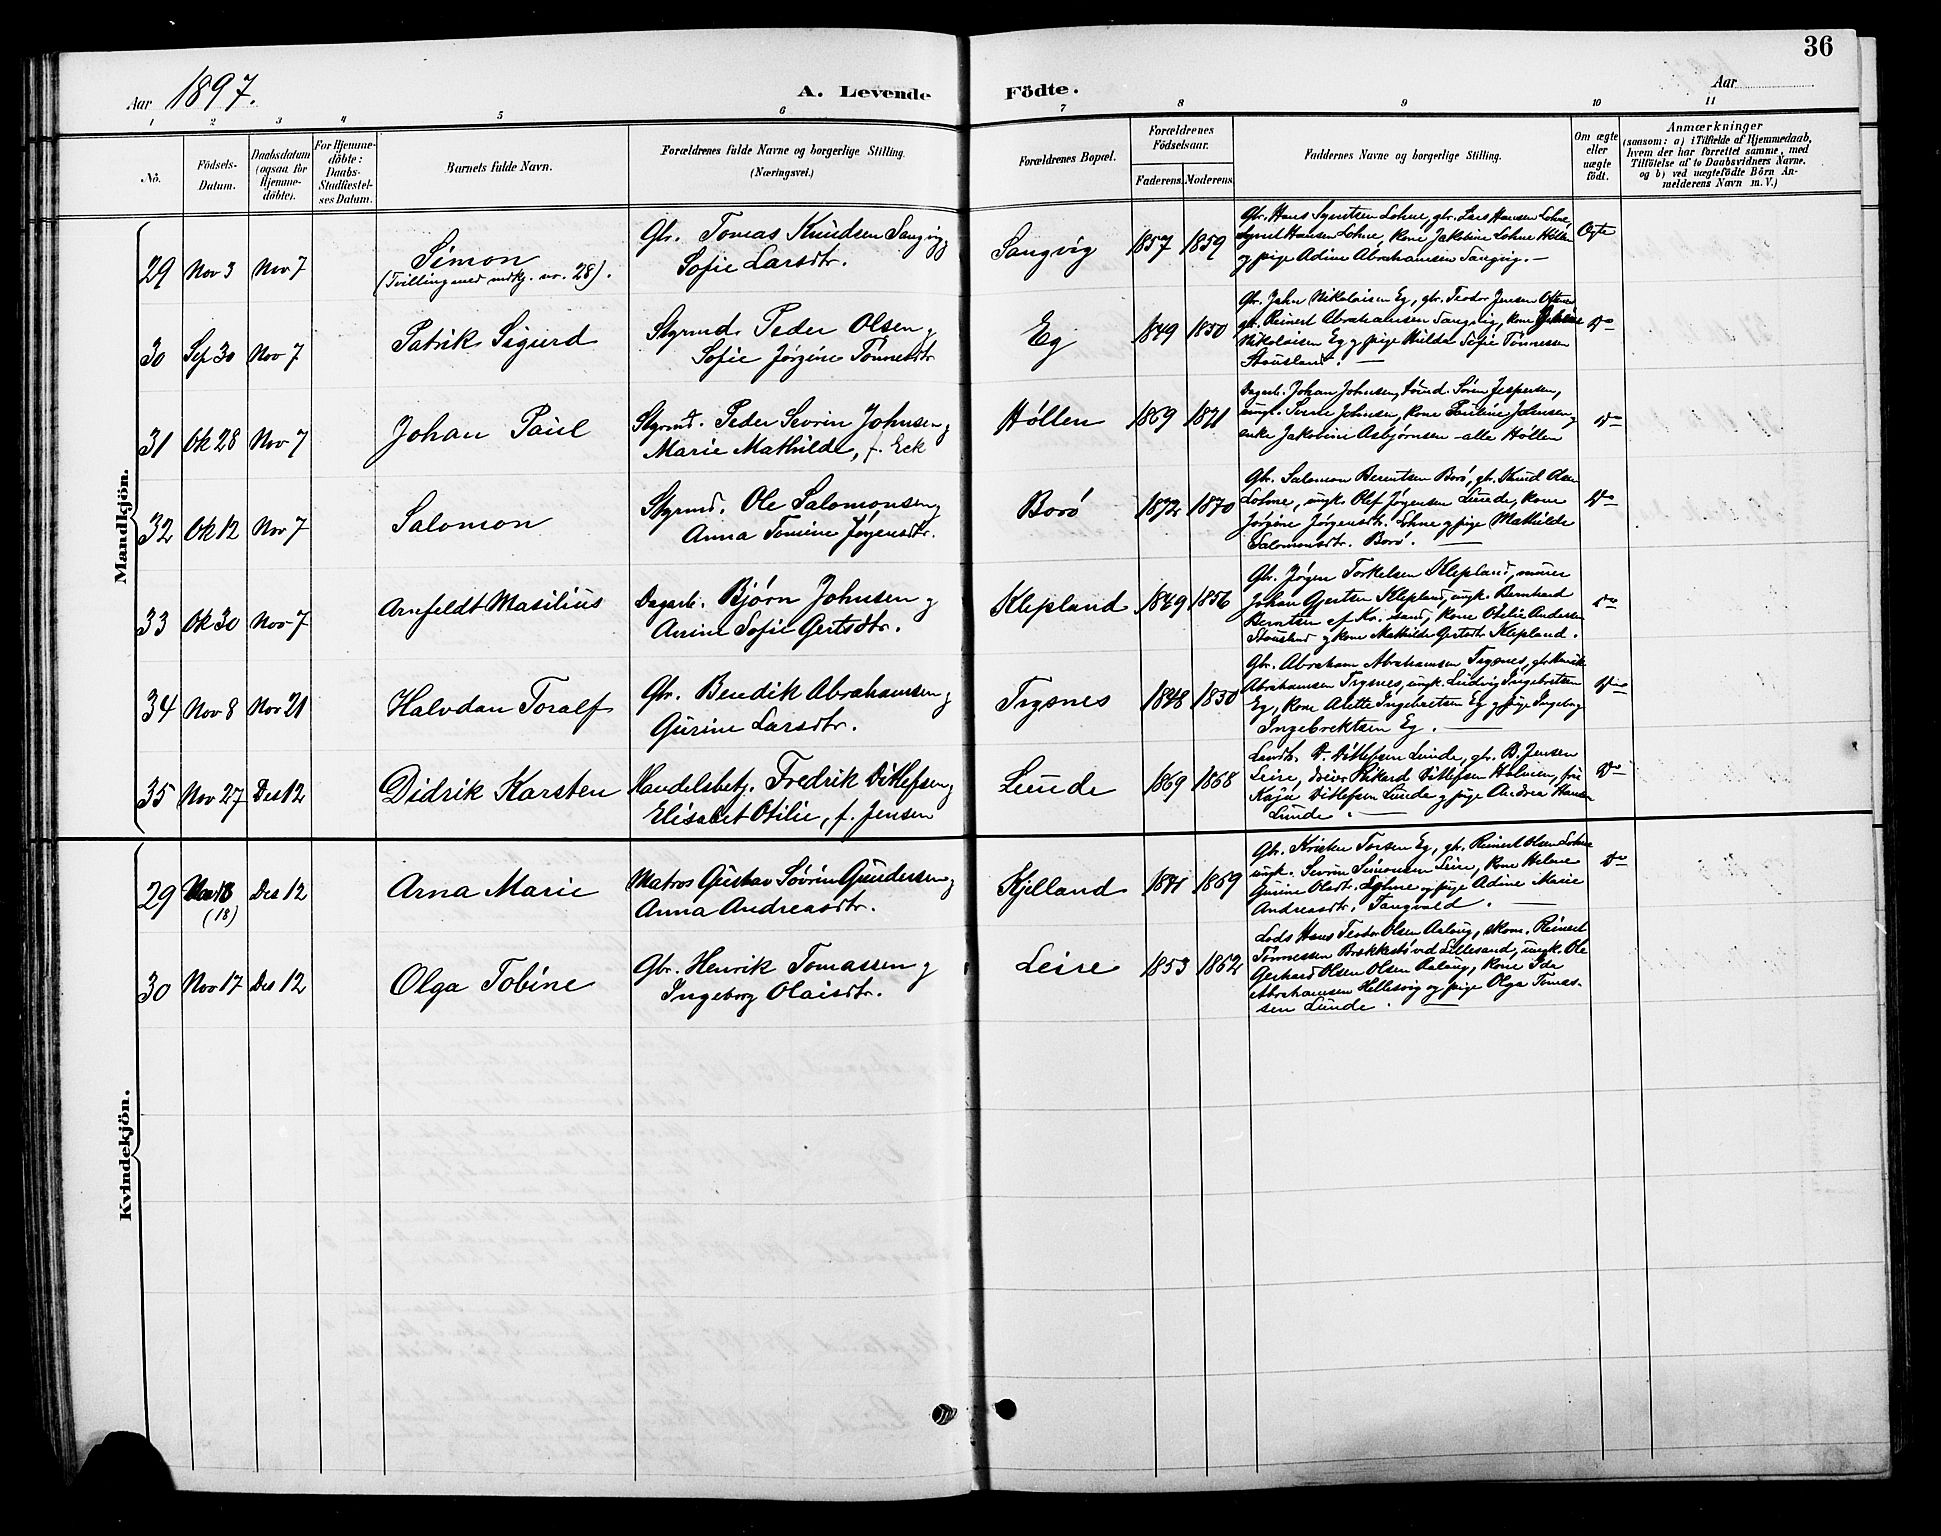 36
Aar 1897. A. Levende Födte. Aar
1 2 3 4 5 6 7 8 9 10 11
Nô. Födsels-Datum. Daabsdatum (ogsaa for Hjemmedöbte). For Hjemmedöbte: Daabs-Stadfæstelses Datum. Barnets fulde Navn. Forældrenes fulde Navne og borgerlige Stilling. (Næringsvei.) Forældrenes Bopæl. Forældrenes Födselsaar. Faderens. Moderens. Faddernes Navne og borgerlige Stilling. Om ægte eller uægte födt. Anmærkninger (saasom: a) i Tilfælde af Hjemmedaab, hvem der har forrettet samme, med Tilföielse af to Daabsvidners Navne. og b) ved uægtefödte Börn Anmelderens Navn m. V.)
Mandkjön.
29 Nov 3 Nov 7 Simon (Tvilling med mdkj. nr. 28). Gbr. Tomas Knudsen Sangvig, Sofie Larsdtr. Sangvig 1857 1859 Gbr. Hans Syvertsen Lohne, gbr. Lars Hansen Lohne,
Hansen Lohne, kone Jakobine Lohne Höllen
og pige Adine Abrahamsen Sangvig. — Ægte
30 Sep 30 Nov 7 Patrik Sigurd Styrmd. Peder Olsen og Sofie Jörgine Tönnesdtr Eg 1849 1850 Gbr. John Nikolaisen Eg, gbr. Teodor Jensen
gbr. Reinert Abrahamsen Sangvig, kone
Nikolaisen Eg og pige Hilda Sofie Tönnessen
Stausland. — Do
31 Ok 28 Nov 7 Johan Paul Styrmd. Peder Severin Johnsen og Marie Mathilde, f. Eck Höllen 1869 1871 Dagarb. Johan Johnsen, Sören Jespersen,
ungk. Johnsen, kone Pauline Johnsen og
enke Jakobine Asbjörnsen – alle Höllen Do
32 Ok 12 Nov 7 Salomon Styrmd. Ole Salomonsen og Anna Tomine Jörgensdtr. Borö 1872 1870 Gbr. Salomon Berentsen Borö, gbr. Knud Olsen
Lohne, ungk. Olef Jörgensen Lunde, kone
Jörgine Jörgensdtr. Lohne og pige Mathilde
Salomonsdtr. Borö. — Do
33 Ok 30 Nov 7 Arnfeldt Masilius Dagarb. Björn Johnsen og Anine Sofie Gertsdtr. Klepland 1849 1856 Gbr. Jörgen Torkelsen Klepland, murer
Johan Gjertsen Klepland, ungk. Bernhard
Berntsen af Kr.sand, kone Otelie Andersen
Stausland og kone Mathilde Gertsdtr Klepland. Do
34 Nov 8 Nov 21 Halvdan Toralf Gbr. Bendik Abrahamsen og Gurine Larsdtr. Trysnes 1848 1850 Gbr. Abraham Abrahamsen Trysnes, gbr.
Abrahamsen Trysnes, ungk. Ludvig Ingebretsen
Eg, kone Alette Ingebretsen Eg og pige Ingeborg
Ingebrektsen Eg. — Do
35 Nov 27 Des 12 Didrik Karsten Handelsbetj. Fredrik Ditlefsen og Elisabet Otilie, f. Jensen Lunde 1869 1868 Landh. D. Ditlefsen Lunde, gbr. B. Jensen
Leire, Rikard Ditlefsen Holmen, frk
Kaja Ditlefsen Lunde og pige Andrea Hansen
Lunde. — Do
Kvindekjön.
29 Nov 18 (18) Des 12 Arna Marie Matros Gustav Sövrin Gundersen og Anna Andreasdtr. Kjelland 1869 Gbr. Kristen Torsen Eg, gbr. Reinert Olsen Lohne
ungk. Severin Simonsen Leire, kone Helene
Gurine Olsdtr. Lohne og pige Adine Marie
Andreasdtr. Tangvald. — Do
30 Nov 17 Des 12 Olga Tobine Gbr. Henrik Tomassen og Ingeborg Olaisdtr. Leire 1853 1862 Lods Hans Teodor Olsen Aalang, skom. Reinert
Tönnessen Brekkestö ved Lillesand, ungk. Ole
Gerhard Olsen Olsen Aalang, kone Ida
Abrahamsen Hellesvig og pige Olga Tomas-
sen Lunde. —